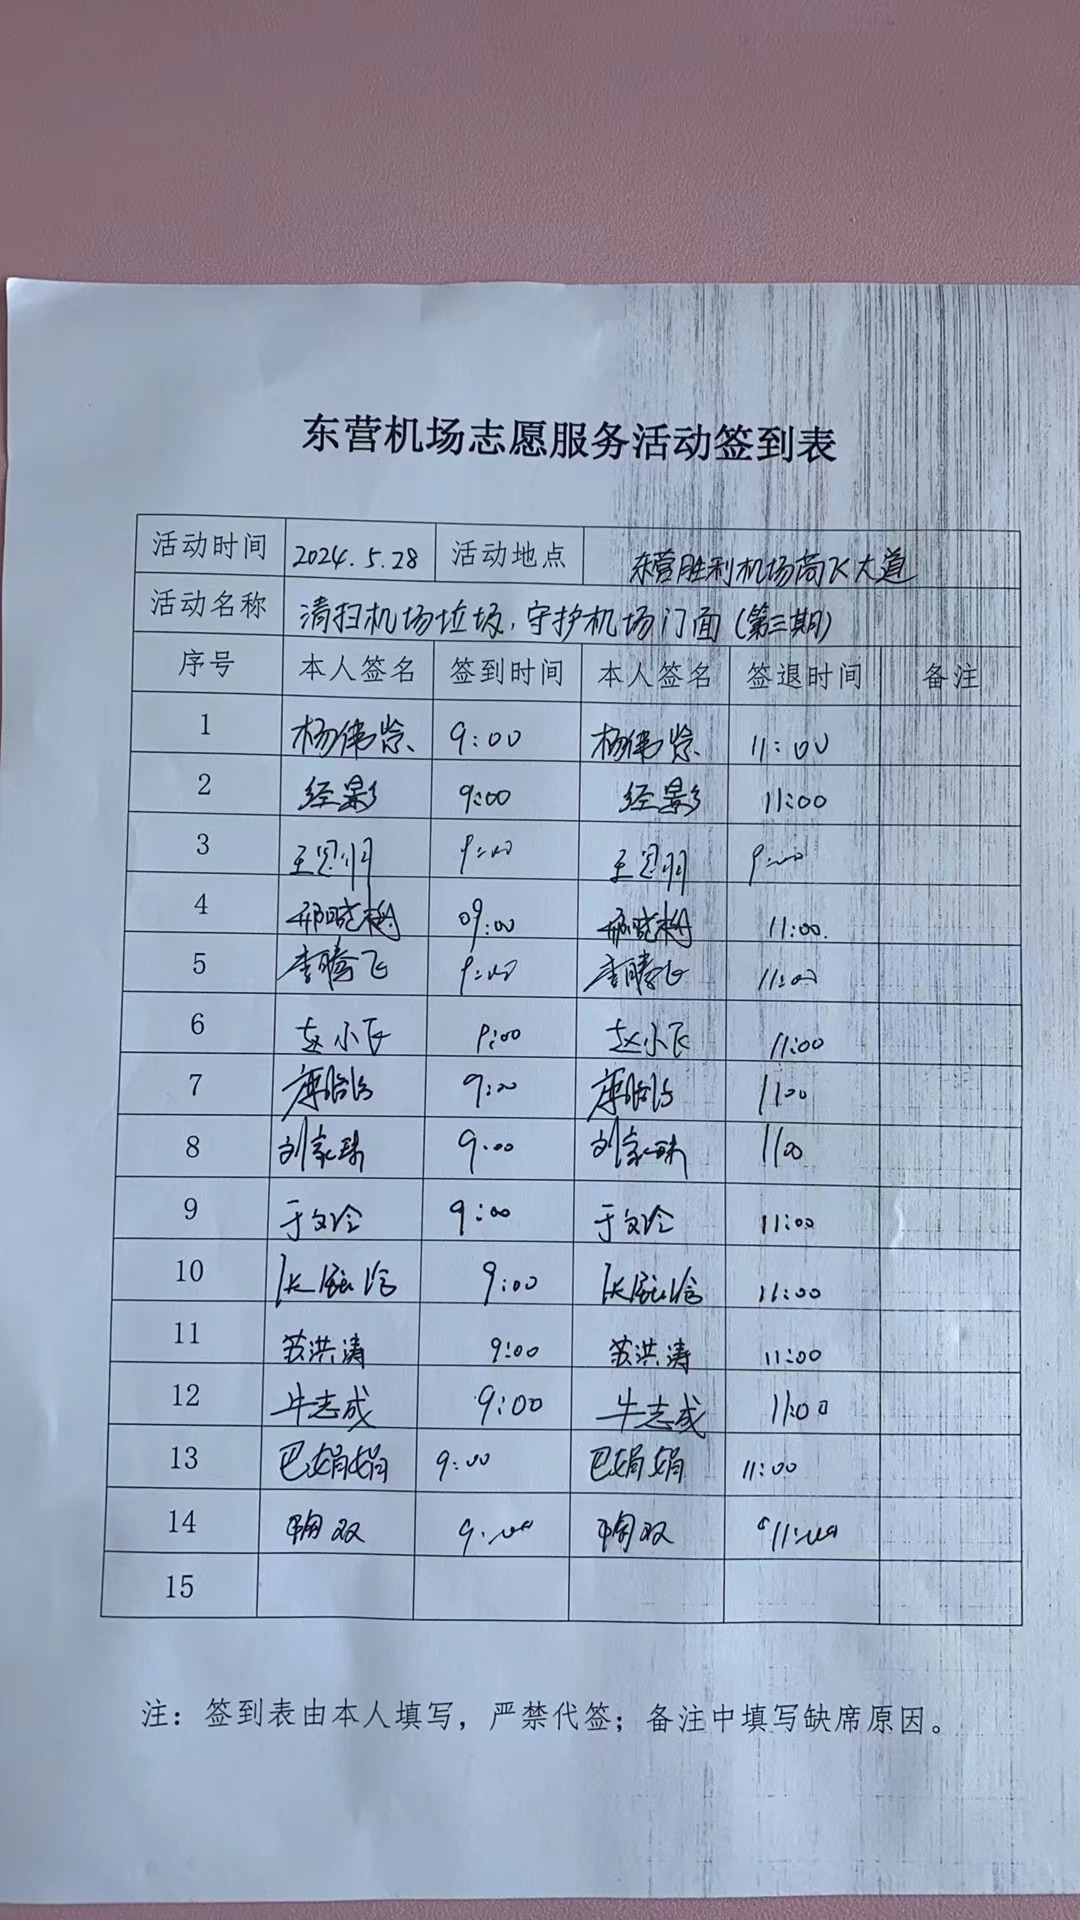 东营机场志愿服务活动签到表
活动时间 2024.5.28 活动地点 东营胜利机场高飞大道
活动名称 清扫机场垃圾,守护机场门面(第三期)
序号 本人签名 签到时间 本人签名 签退时间 备注
1 杨伟 9:00 杨伟 11:00
2 经影 9:00 经影 11:00
3 王 9:00 王 9:00
4 邢晓树 09:00 邢晓树 11:00.
5 李腾飞 9:00 李腾飞 11:00
6 赵小飞 9:00 赵小飞 11:00
7 9:00 1100
8 刘家珠 9:00 刘家珠 1100
9 于文玲 9:00 于文玲 11:00
10 张 9:00 张 11:00
11 苏洪涛 9:00 苏洪涛 11:00
12 牛志成 9:00 牛志成 11:00
13 巴娟娟 9:00 巴娟娟 11:00
14 双 9:00 双 11:00
15
注：签到表由本人填写，严禁代签；备注中填写缺席原因。